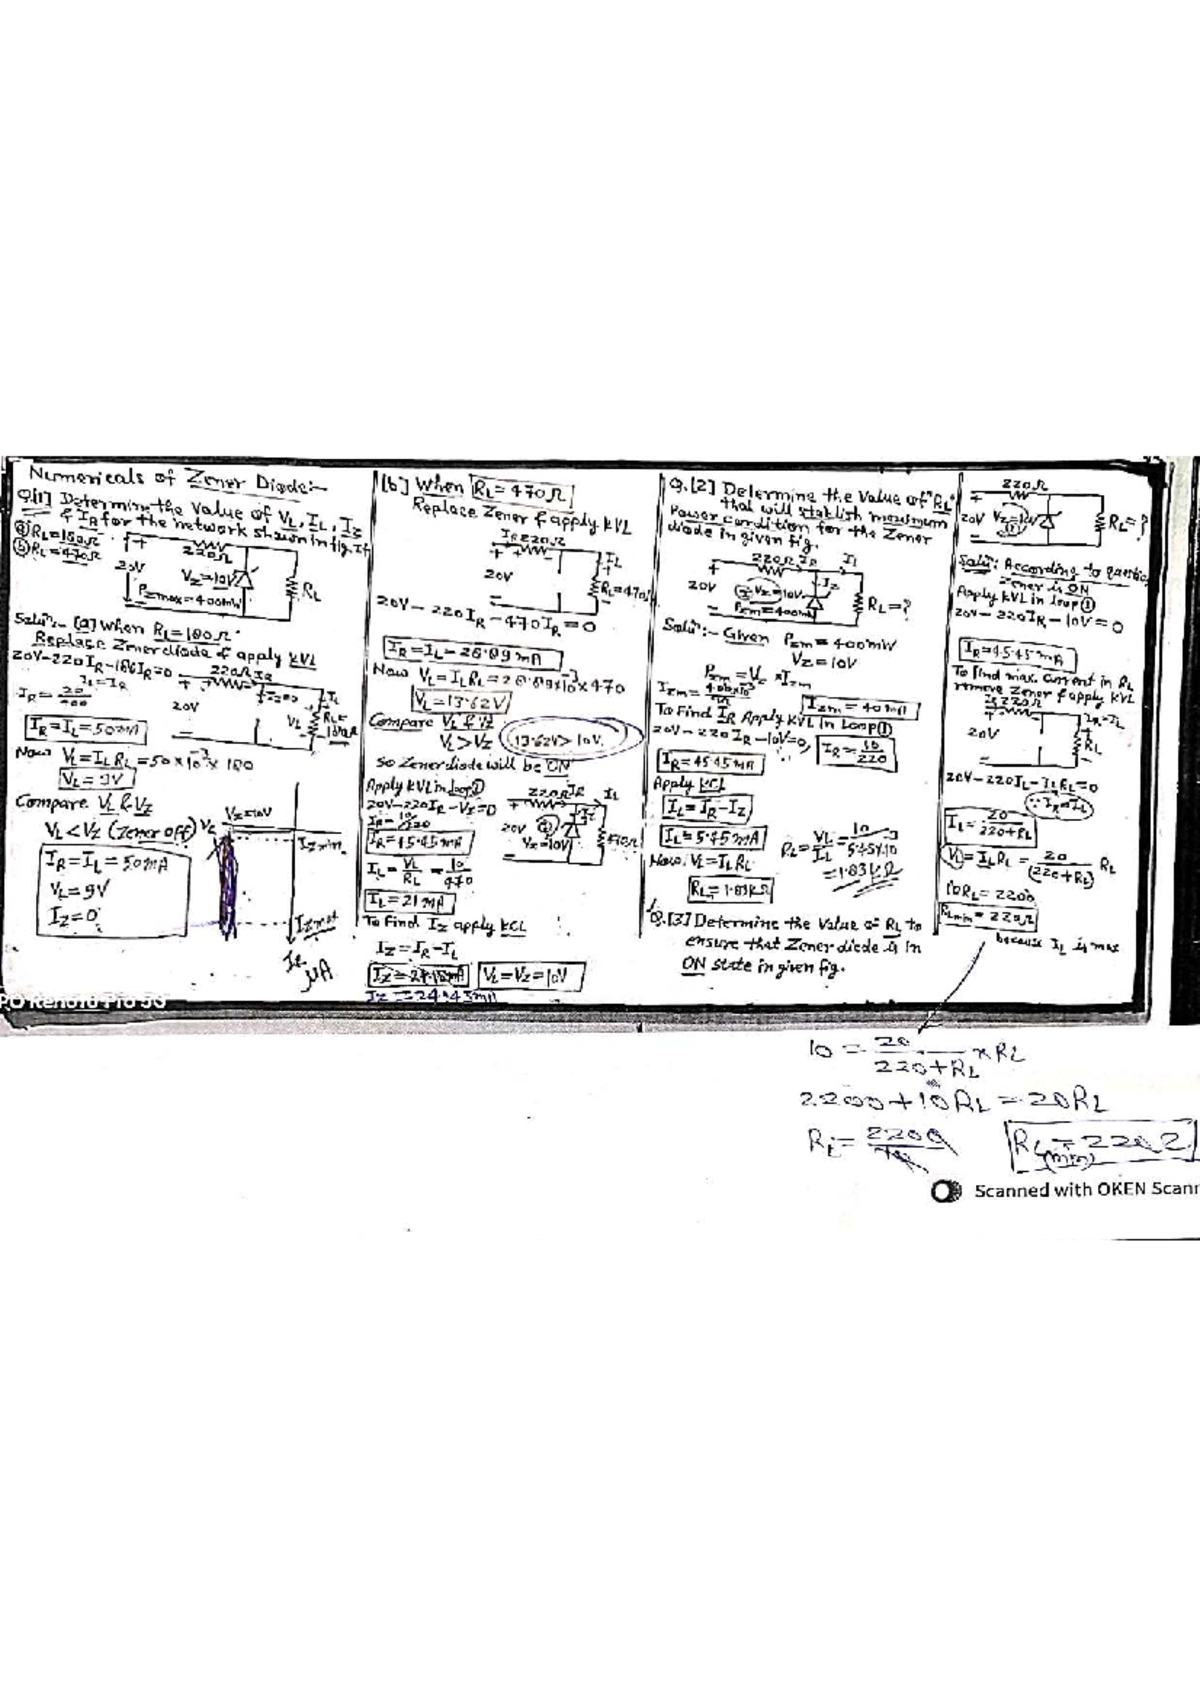 Numericals of Zener Diode:-
Q.[1] Determine the value of VL, IL, IZ
& IR for the network shown in fig. If
(a) RL=180Ω
(b) RL=470Ω
220Ω
20V
VZ=10V
RL
PZmax=400mW
Soluⁿ:- [a] When RL=180Ω.
Replace Zener diode & apply KVL
20V-220IR-180IR=0
IL=IR
IR=20/400
220Ω IR
20V
IZ=0
IL
VL
RL=180Ω
IR=IL=50mA
Now VL=ILRL=50×10⁻³×180
VL=9V
Compare VL & VZ
VL<VZ (Zener off)
IR=IL=50mA
VL=9V
IZ=0
VZ=10V
IZmin.
μA
[b] When RL=470Ω
Replace Zener & apply KVL
IR 220Ω
IL
20V
RL=470Ω
20V-220IR-470IR=0
IR=IL=28.89mA
Now VL=ILRL=28.89×10⁻³×470
VL=13.62V
Compare VL & VZ
VL>VZ 13.62V>10V
So Zener diode will be ON
Apply KVL in loop①
20V-220IR-VZ=0
IR=10/220
IR=45.45mA
220Ω IR
IL
20V
VZ=10V
470Ω
IL=VL/RL=10/470
IL=21mA
To Find IZ apply KCL
IZ=IR-IL
VL=VZ=10V
IZ=24.45mA
Q.[2] Determine the value of "RL"
that will stablish maximum
Power condition for the Zener
diode in given fig.
220Ω IR
IL
20V
VZ=10V
IZ
RL=?
PZm=400mW
Soluⁿ:- Given PZm=400mW
VZ=10V
IZm=40mA
To Find IR Apply KVL in Loop①
20V-220IR-10V=0, IR=10/220
IR=45.45mA
Apply KCL
IL=IR-IZ
IL=5.45mA
Now, VL=ILRL
RL=1.83KΩ
=1.83KΩ
Q.[3] Determine the value of RL to
ensure that Zener diode is in
ON state in given fig.
220Ω
20V
VZ=10V
RL=?
Soluⁿ: According to question
Zener is ON
Apply KVL in loop①
20V-220IR-10V=0
IR=45.45mA
To find max. current in RL
remove Zener & apply KVL
IR 220Ω
IR=IL
20V
RL
20V-220IL-ILRL=0
∵IR=IL
IL=20/(220+RL)
VL=ILRL=20/(220+RL) RL
10RL=2200
RLmin=220Ω
because IL is max
10 = 20/(220+RL) × RL
2200+10RL=20RL
RL=2200/10
RL(min)=220Ω
Scanned with OKEN Scann